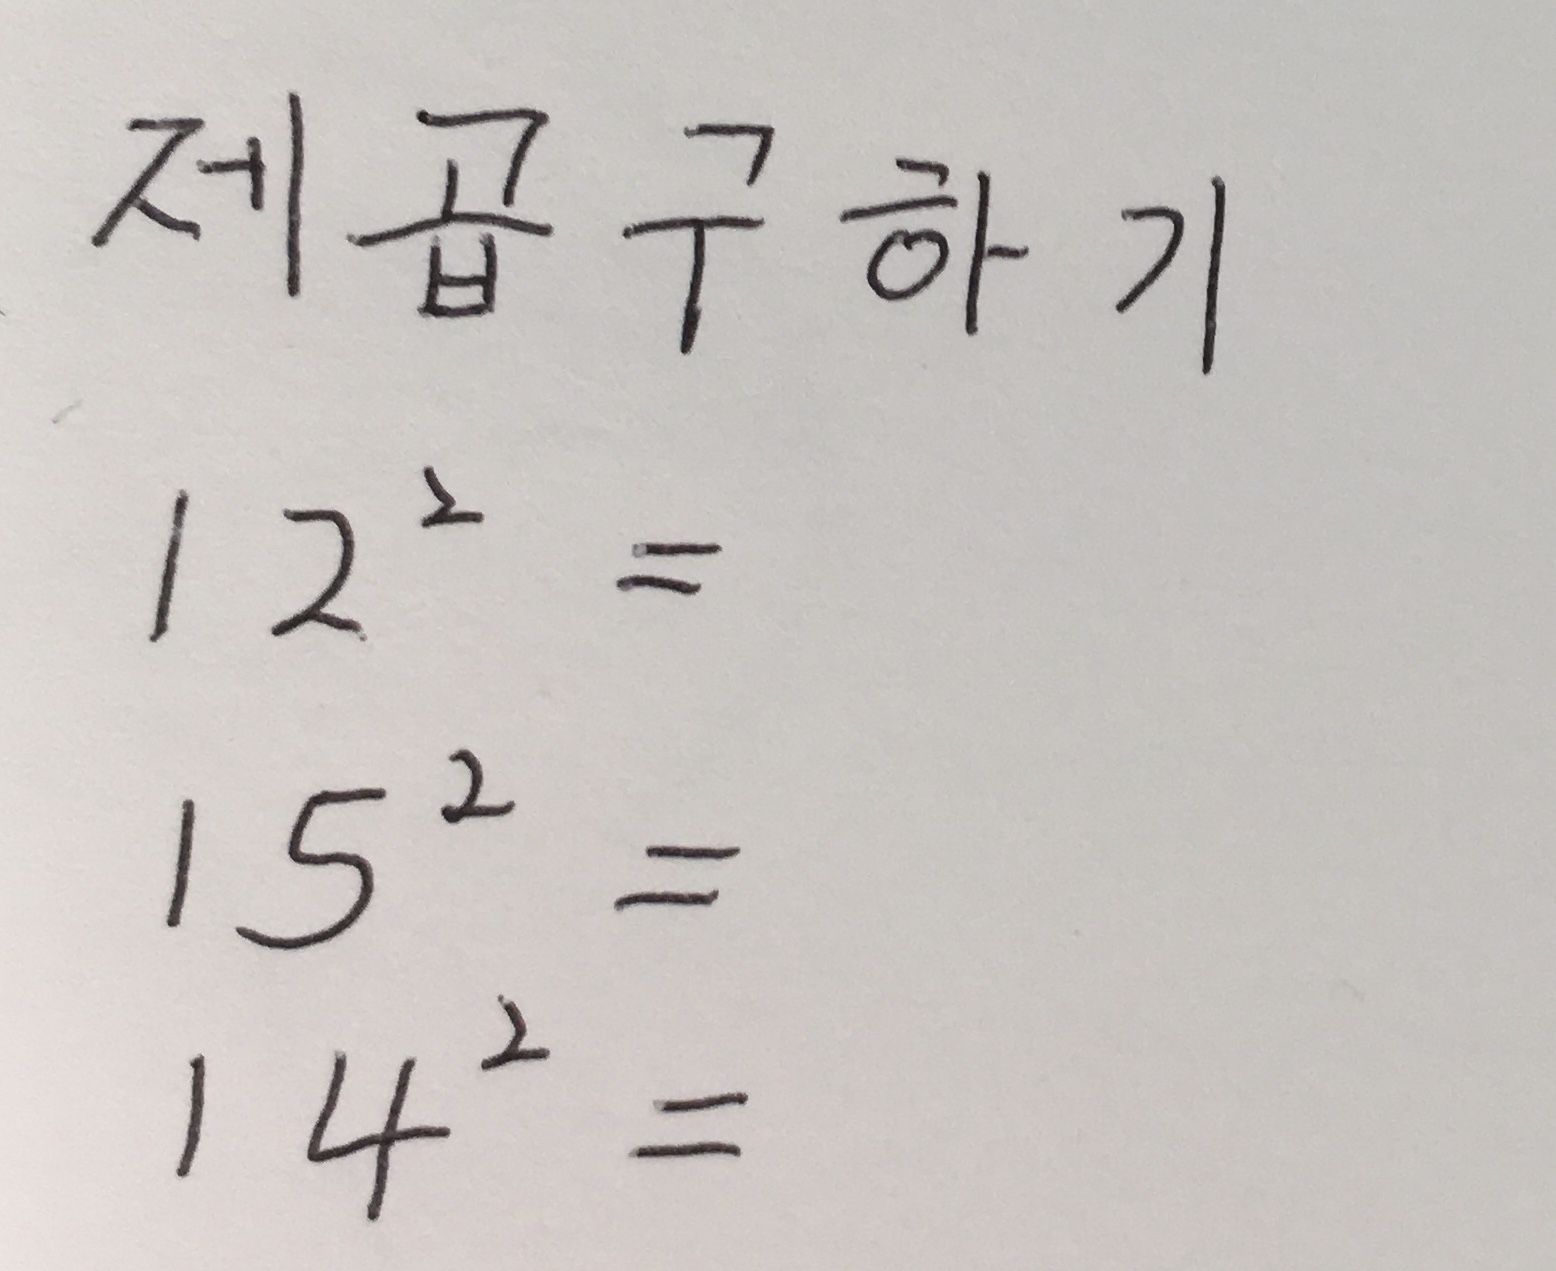 제곱구하기
12² =
15² =
14² =